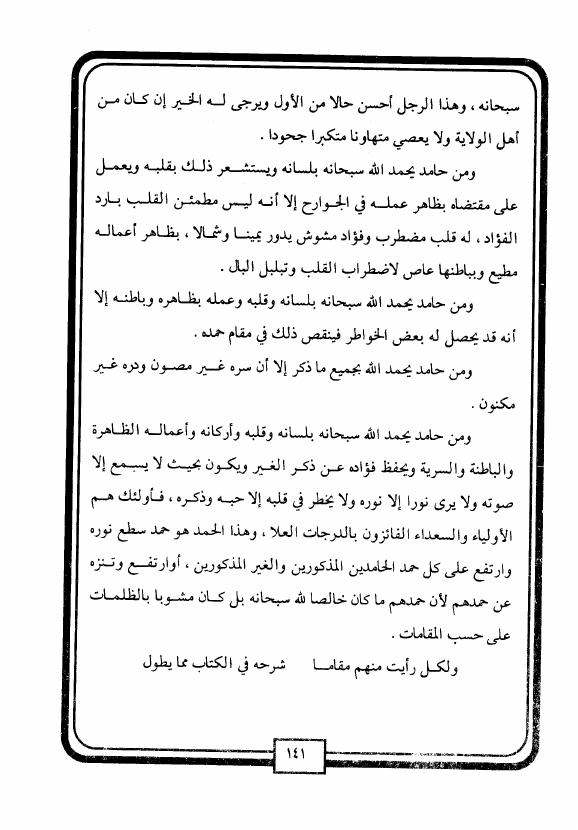 سبحانه ، وهذا الرجل أحسن حالا من الأول ويرجى له الخير إن كان من
أهل الولاية ولا يعصي متهاونا متكبرا جحودا .
ومن حامد يحمد الله سبحانه بلسانه ويستشعر ذلك بقلبه ويعمل
على مقتضاه بظاهر عمله في الجوارح إلا أنه ليس مطمئن القلب بارد
الفؤاد ، له قلب مضطرب وفؤاد مشوش يدور يمينا وشمالا ، بظاهر أعماله
مطيع وبباطنها عاص لاضطراب القلب وتبلبل البال .
ومن حامد يحمد الله سبحانه بلسانه وقلبه وعمله بظاهره وباطنه إلا
أنه قد يحصل له بعض الخواطر فينقص ذلك في مقام حمده .
ومن حامد يحمد الله بجميع ما ذكر إلا أن سره غير مصون ودره غير
مكنون .
ومن حامد يحمد الله سبحانه بلسانه وقلبه وأركانه وأعماله الظاهرة
والباطنة والسرية ويحفظ فؤاده عن ذكر الغير ويكون بحيث لا يسمع إلا
صوته ولا يرى نورا إلا نوره ولا يخطر في قلبه إلا حبه وذكره ، فأولئك هم
الأولياء والسعداء الفائزون بالدرجات العلا ، وهذا الحمد هو حمد سطع نوره
وارتفع على كل حمد الحامدين المذكورين والغير المذكورين ، أوارتفع وتنزه
عن حمدهم لأن حمدهم ما كان خالصا لله سبحانه بل كان مشوبا بالظلمات
على حسب المقامات .
ولكل رأيت منهم مقاما شرحه في الكتاب مما يطول
١٤١